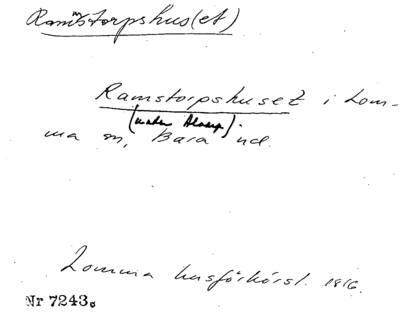 Ramstorpshus(et)
Ramstorpshuset i Lom-
(under Alnarp)
ma sn, Bara hd.
Lomma husförhörsl. 1816.
Nr 7243.